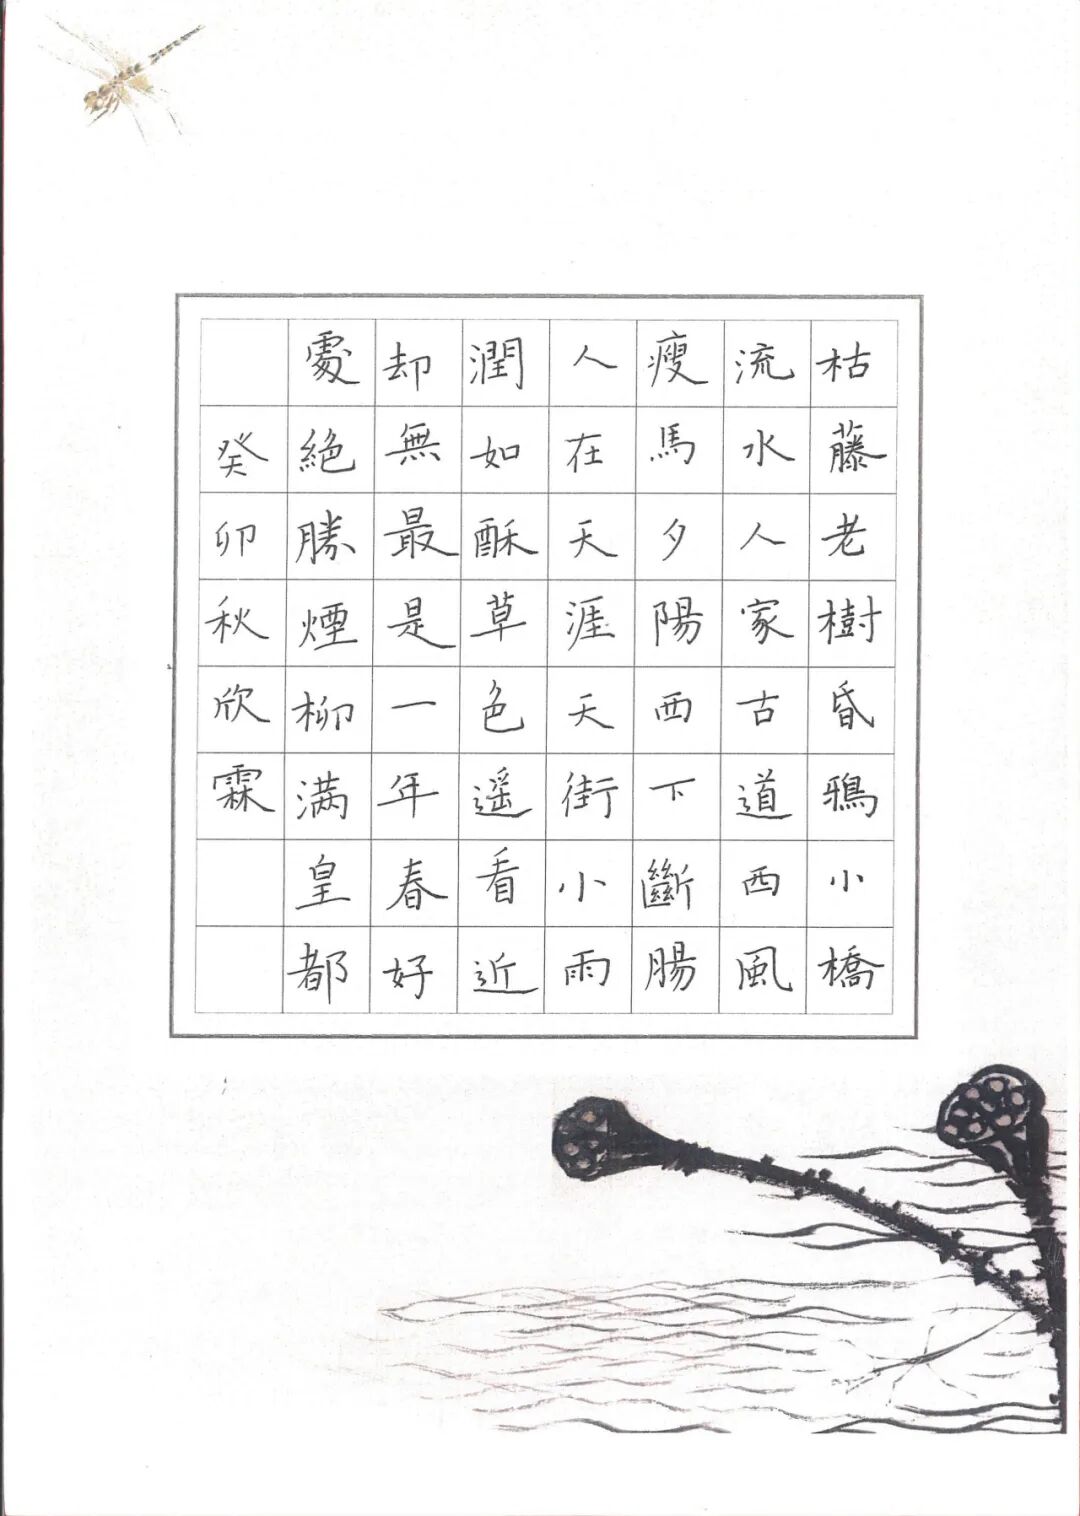 枯藤老樹昏鴉小橋
流水人家古道西風
瘦馬夕陽西下斷腸
人在天涯天街小雨
潤如酥草色遥看近
却無最是一年春好
處絕勝煙柳满皇都
癸卯秋欣霖